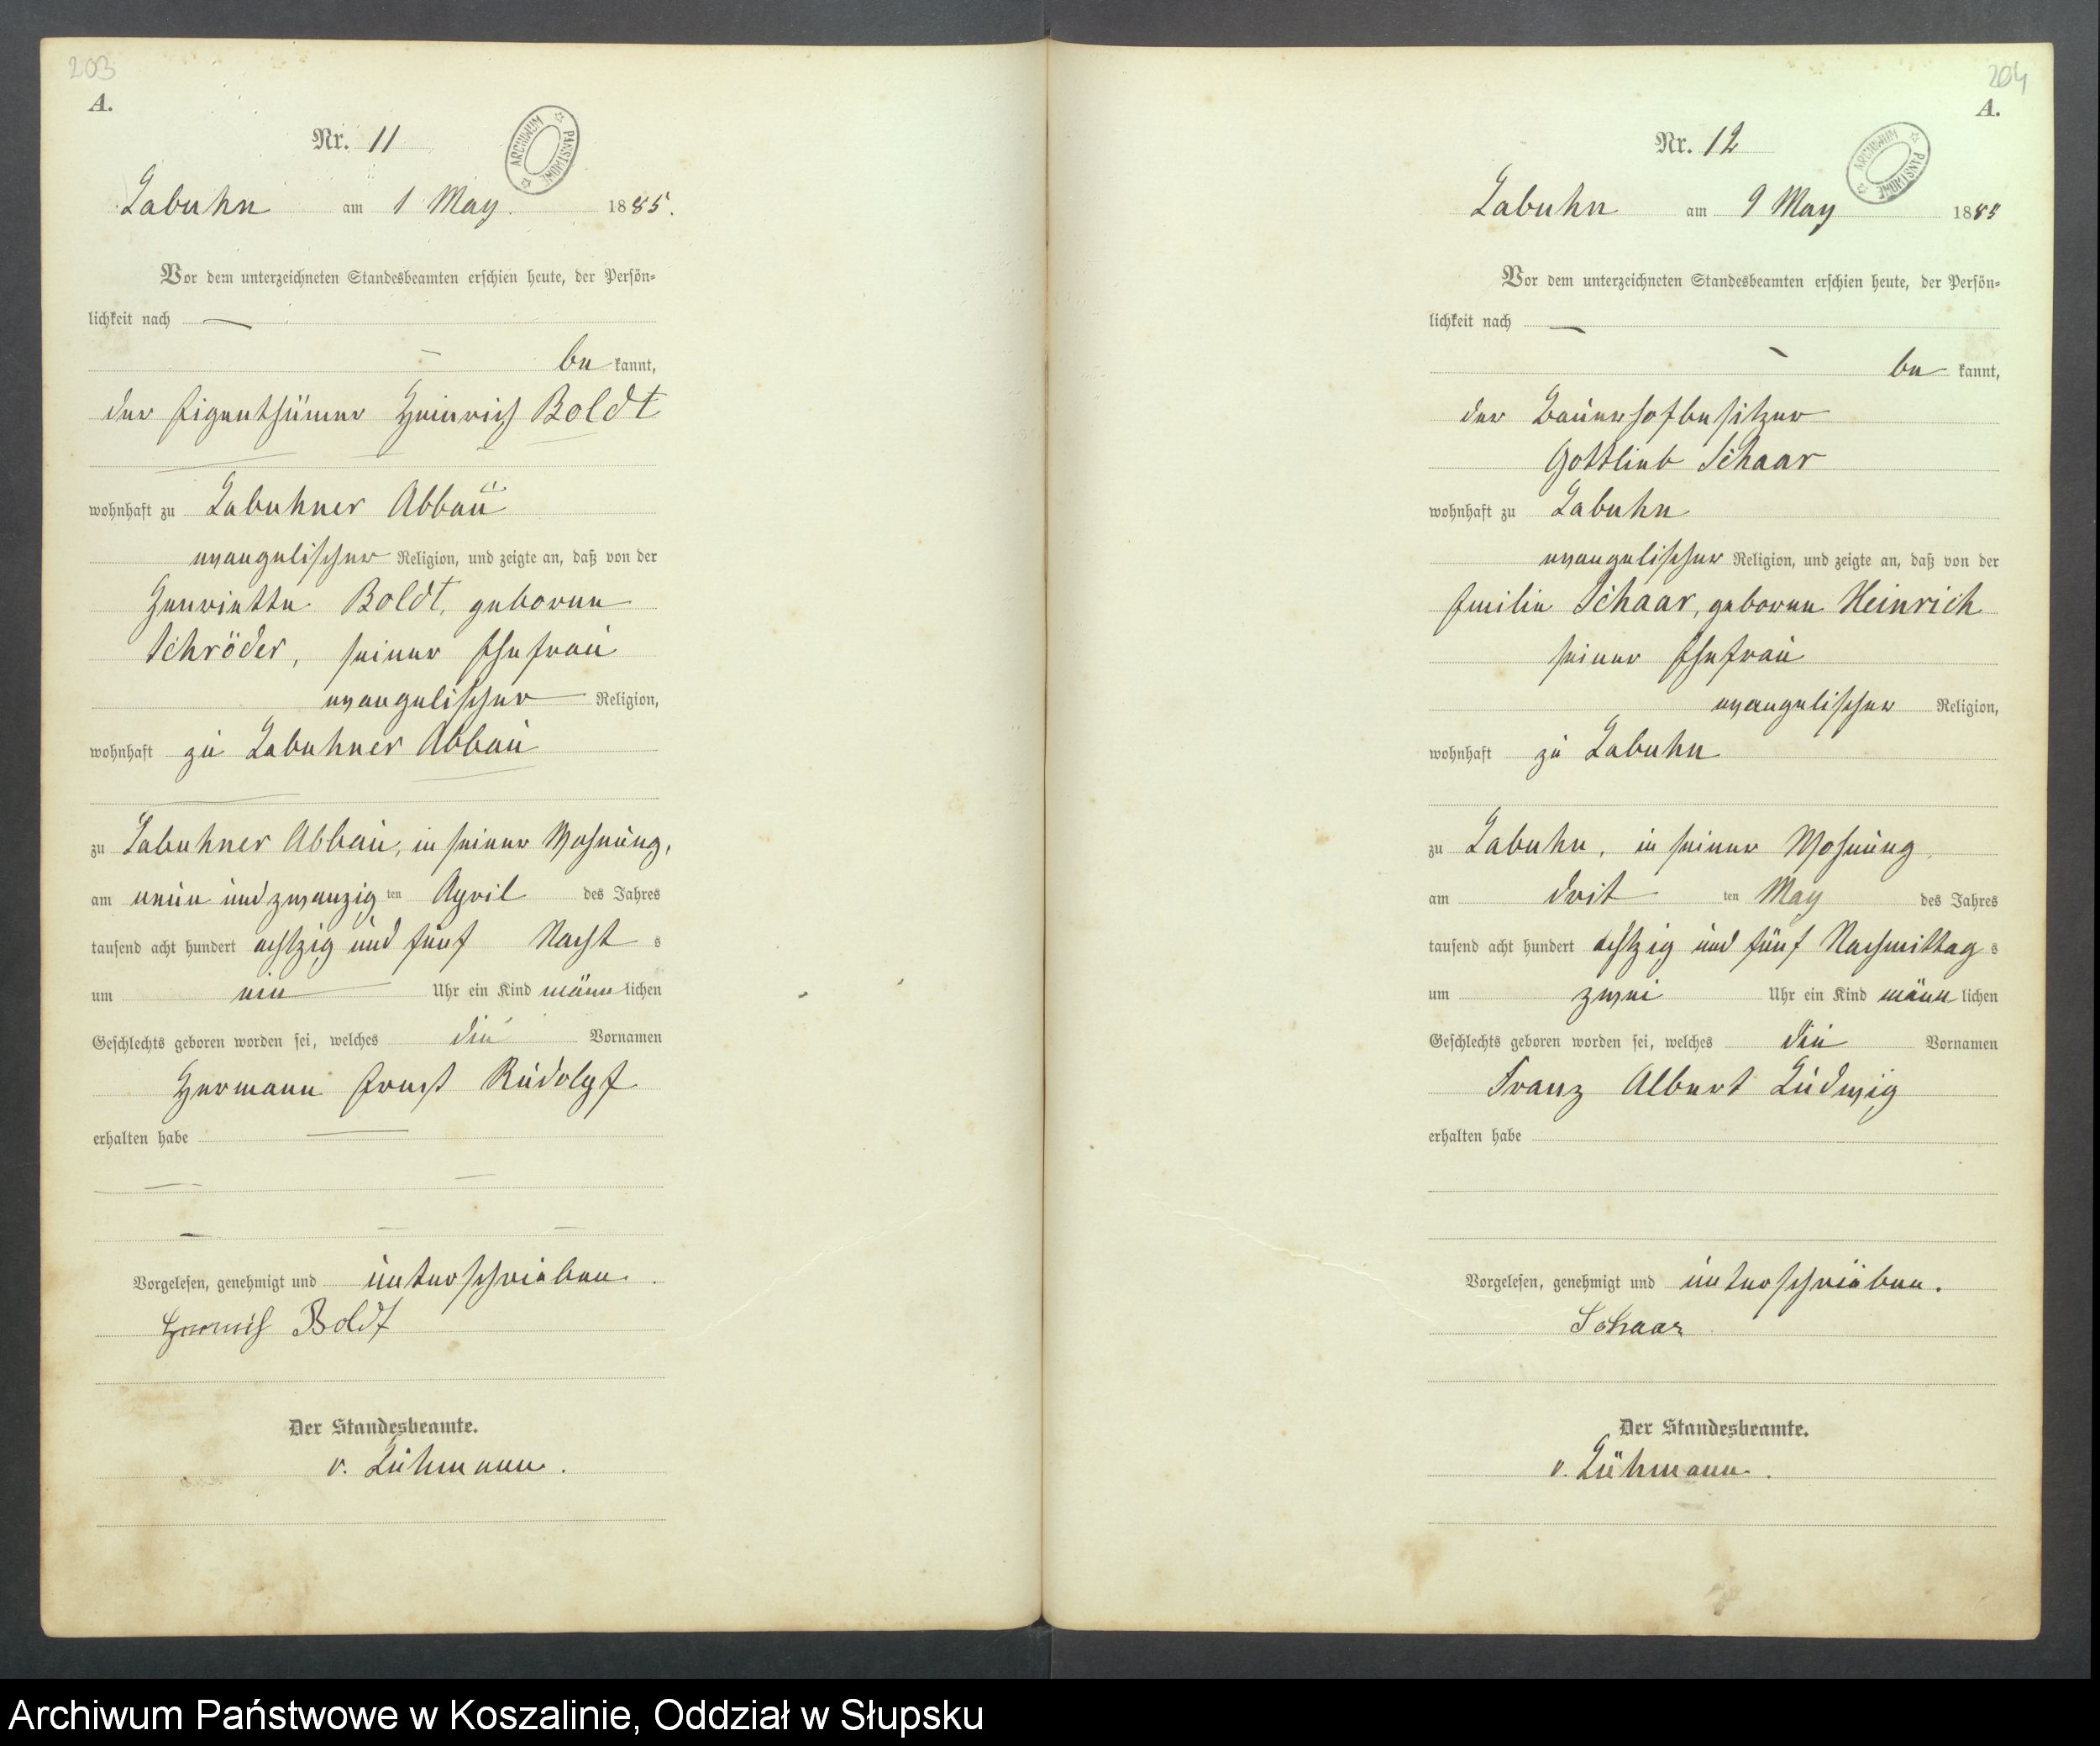 203
A.
Nr. 11
ARCHIWUM PAŃSTWOWE
Labuhn am 1 May. 1885.
Vor dem unterzeichneten Standesbeamten erschien heute, der Persön=
lichkeit nach —
— be kannt,
der Eigenthümer Heinrich Boldt
wohnhaft zu Labuhner Abbau
evangelischer Religion, und zeigte an, daß von der
Henriette Boldt, geborene
Schröder, seiner Ehefrau
evangelischer Religion,
wohnhaft zu Labuhner Abbau
zu Labuhner Abbau, in seiner Wohnung,
am neun und zwanzig ten April des Jahres
tausend acht hundert achtzig und fünf Nacht s
um ein Uhr ein Kind männ lichen
Geschlechts geboren worden sei, welches die Vornamen
Hermann Ernst Rudolph
erhalten habe —
Vorgelesen, genehmigt und unterschrieben.
Heinrich Boldt
Der Standesbeamte.
v. Lühmann.
204
A.
Nr. 12
ARCHIWUM PAŃSTWOWE
Labuhn am 9 May 1885
Vor dem unterzeichneten Standesbeamten erschien heute, der Persön=
lichkeit nach —
— be kannt,
der Bauerhofbesitzer
Gottlieb Schaar
wohnhaft zu Labuhn
evangelischer Religion, und zeigte an, daß von der
Emilie Schaar, geborene Heinrich
seiner Ehefrau
evangelischer Religion,
wohnhaft zu Labuhn
zu Labuhn, in seiner Wohnung,
am drit ten May des Jahres
tausend acht hundert achtzig und fünf Nachmittag s
um zwei Uhr ein Kind männ lichen
Geschlechts geboren worden sei, welches die Vornamen
Franz Albert Ludwig
erhalten habe
Vorgelesen, genehmigt und unterschrieben.
Schaar
Der Standesbeamte.
v. Lühmann.
Archiwum Państwowe w Koszalinie, Oddział w Słupsku